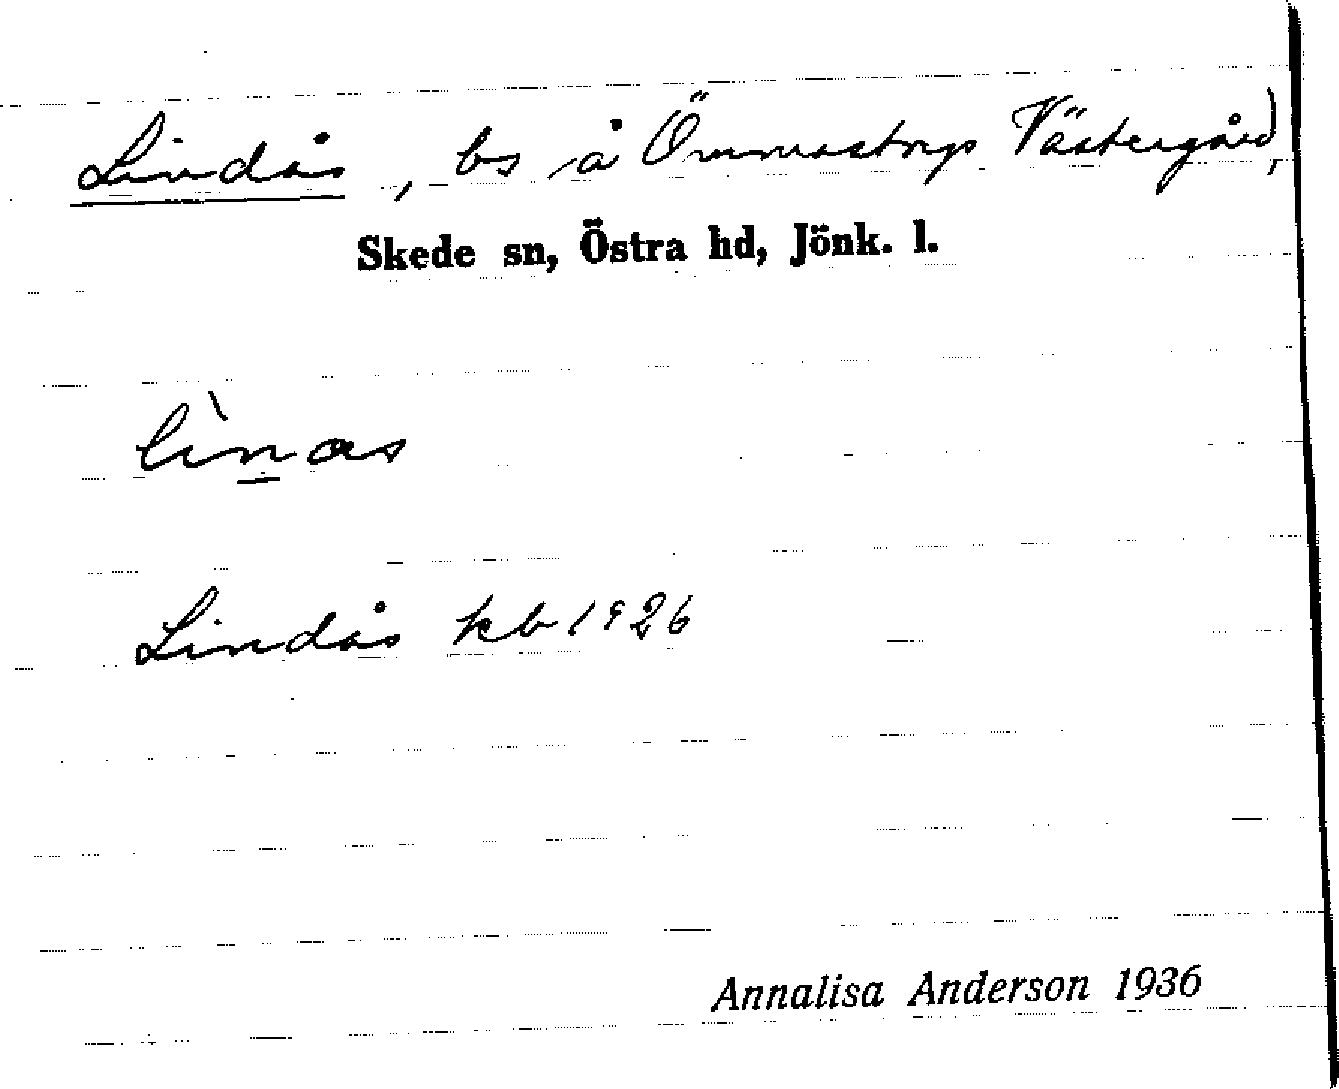 Lindås, bs å Ömmestorps Västergård,
Skede sn, Östra hd, Jönk. l.
lìnas
Lindås kb 1926
Annalisa Anderson 1936